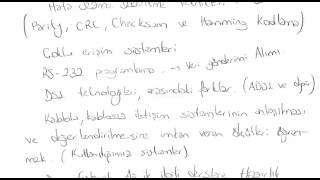 Hata
(Parity, CRC, Checksum ve Hamming Kodlama)
Çoklu erişim sistemleri
RS-232 programlama → Veri gönderimi Alımı
DSL teknolojileri, arasındaki farklar. (ADSL ve diğer)
Kablolu, kablosuz iletişim sistemlerinin anlaşılması
ve değerlendirilmesine imkan veren ölçütleri öğren-
mek. (Kullandığımız sistemler)
ilgili dersler Hazırlık